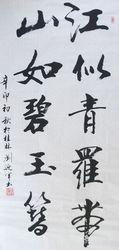 江似青羅帶
山如碧玉簪
辛卯初秋於桂林劉